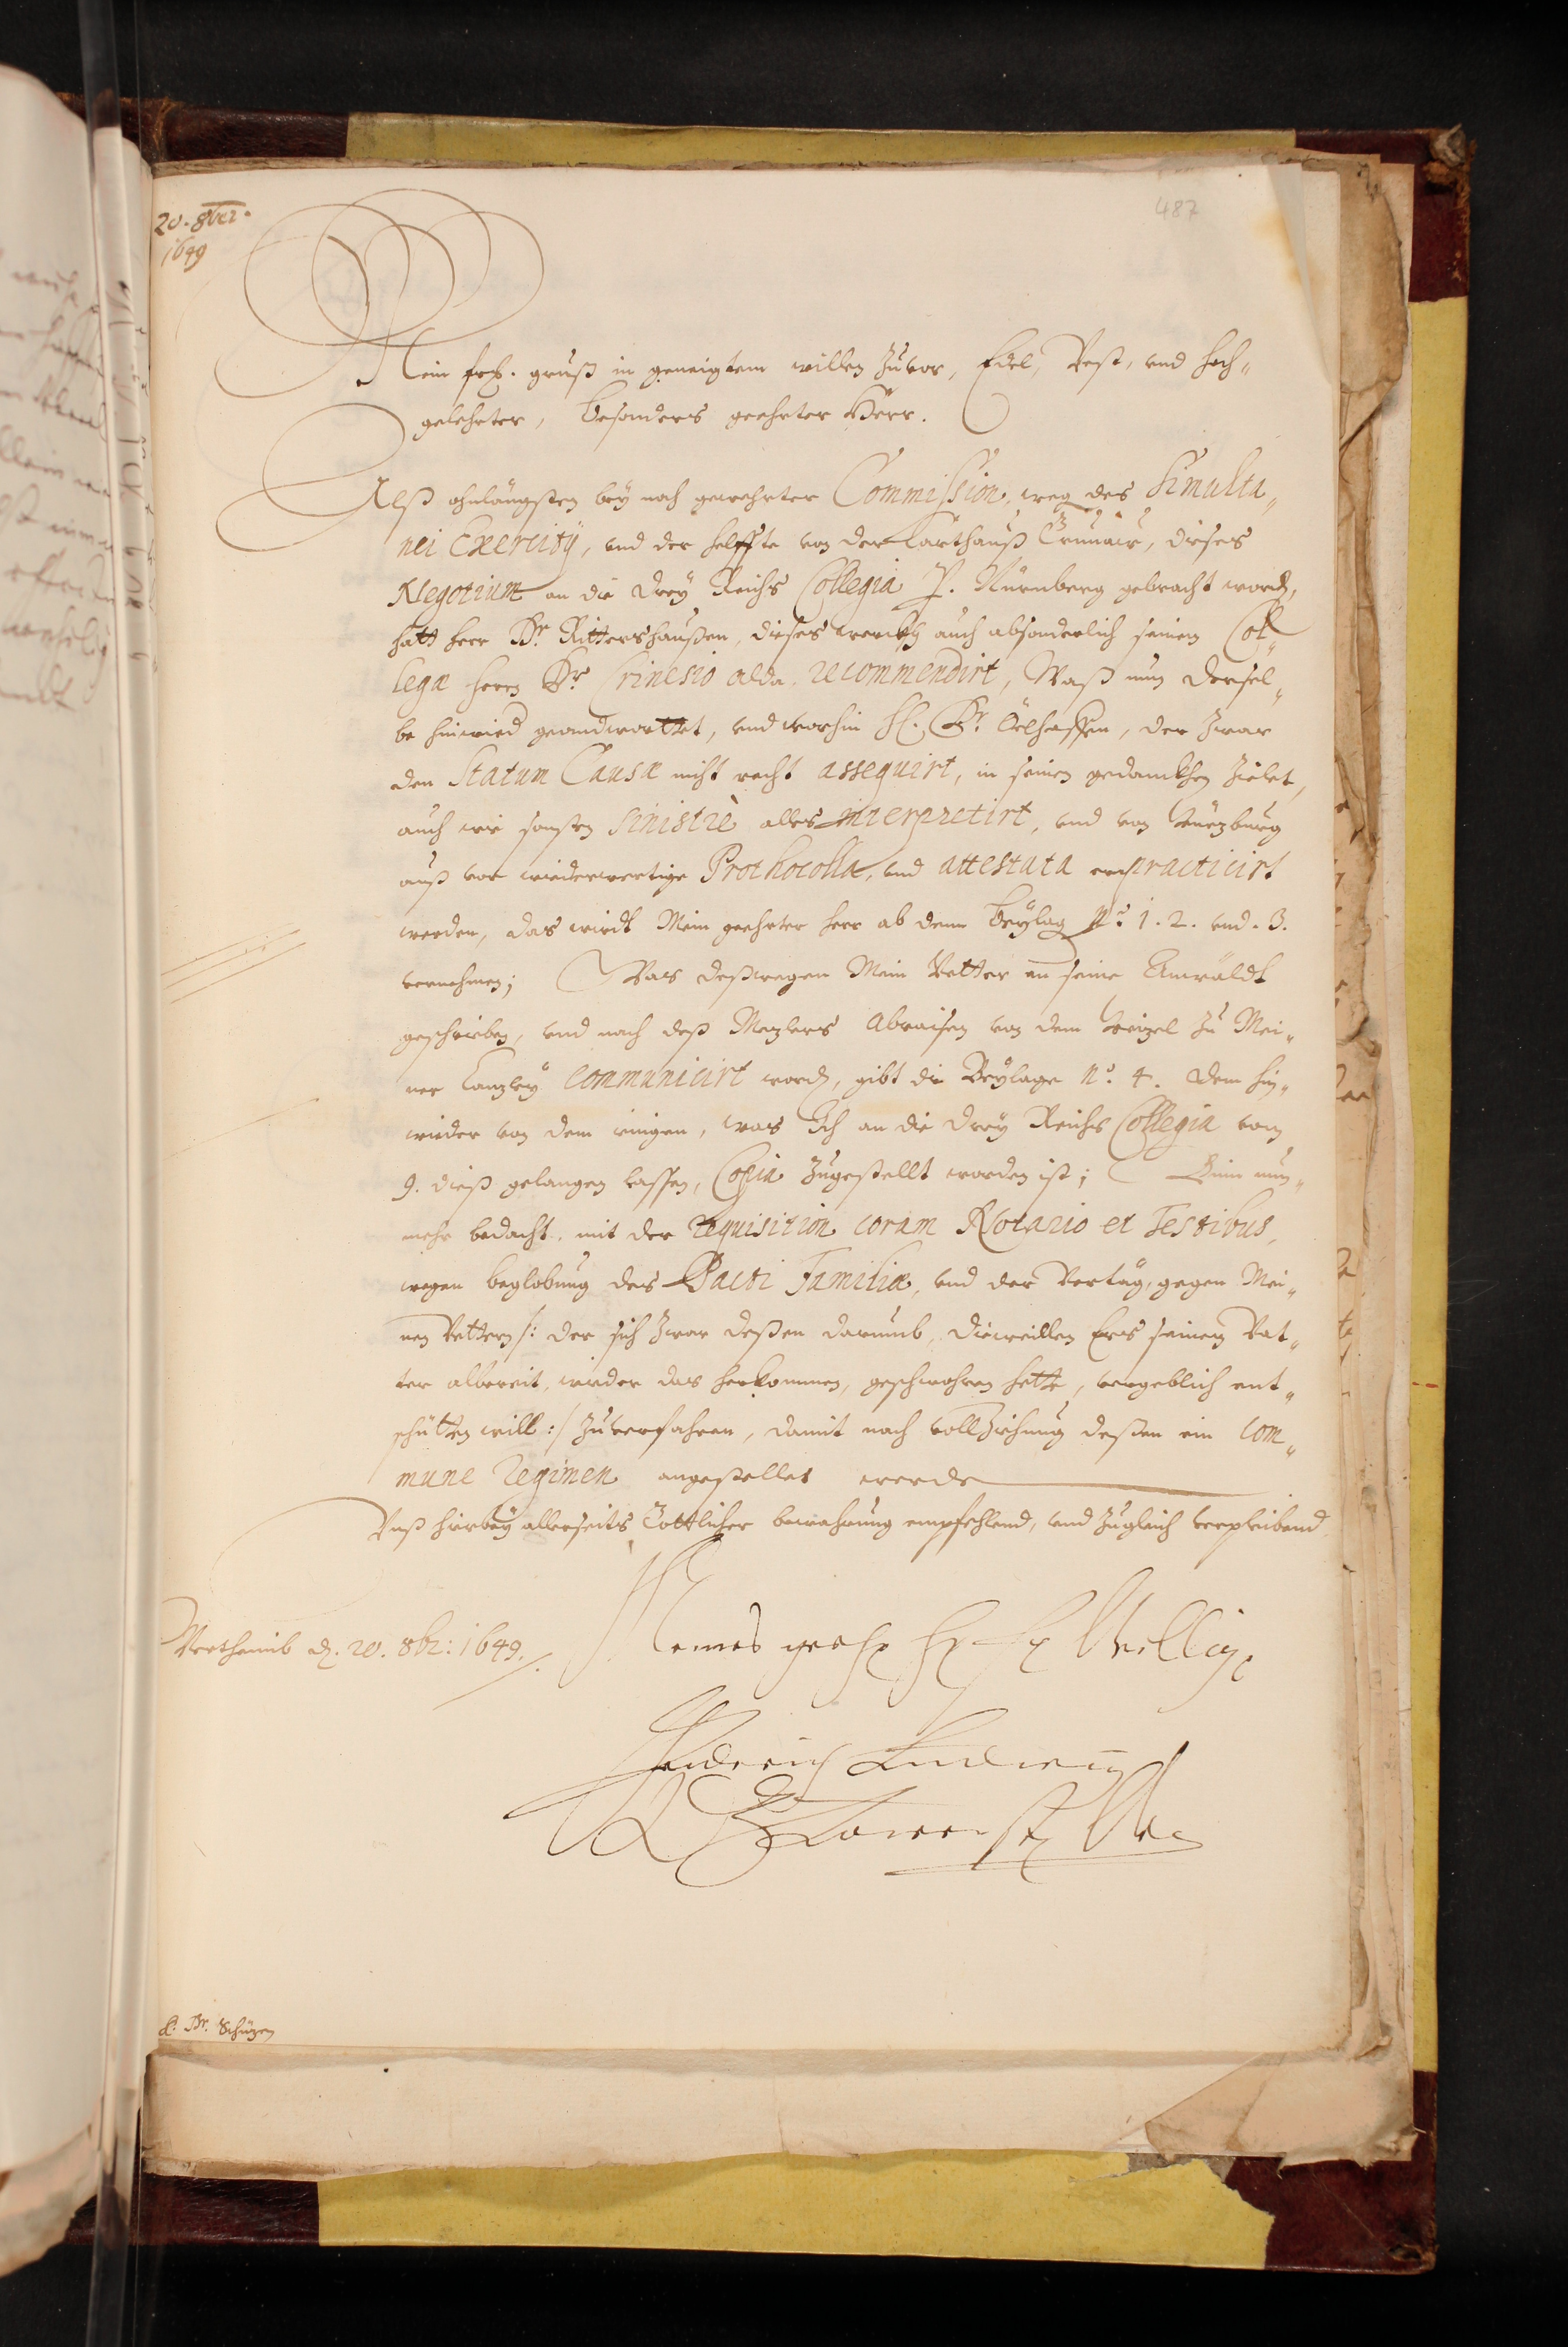 20. 8ber.
1649
487
Mein frl. gruß in geneigtem willen zuvor, Edel, Vest, und hoch„
gelehrter, besonders geehrter Herr.
Alß ohnlängsten bey noch gewehrter Commission, weg. des Simulta„
nei Exercitÿ, und der helffte von der Carthauß Grünaw, dieses
Negotium an die drey Reichs Collegia p. Nürnberg gebracht word,
hatt herr Dr. Rittershaußen, dieses werckh auch absonderlich seinen Col„
lega herrn Dr. Crinesio alda recommendirt, Waß nun dersel„
be hinwied geandworttet, und worhin H. Dr. Ölhaffen, der zwar
den Statum Causæ nicht recht assequirt, in seinen gedanckhen zielet,
auch wie sonsten sinistrè alles interpretirt, und von Würzburg
auß vor wiederwertige Prothocolla, und attestata practicirt
werden, das wirdt Mein geehrter herr ab denn Beylag No. 1. 2. und. 3.
vernehmen; Was deßwegen Mein Vetter an seine Anwäldt
geschrieben, und nach deß Mezlers abraisen von dem Weizel zu Mei„
ner Canzley communicirt word, gibt die Beylage No. 4. dem hin„
wieder von dem einigen, was Ich an die drey Reichs Collegia vom
9. dieß gelangen lassen, Copia zugestellt worden ist; Binn nun„
mehr bedacht, mit der requisition coram Notario et Testibus,
wegen beglobung des Pacti Familiæ, und der Verträg, gegen Mei„
nen Vettern /: der sich zwar deßen darumb, dieweillen Ers seinem Vat„
ter albereit, wieder das herkommen, geschwohren hette, vergeblich ent„
schütten will :/ zuverfahren, damit nach vollziehung deßen ein com„
mune regimen angestellet werde
Unß hierbey allerseits Göttlicher bewahrung empfehlend, und zugleich verpleibend
Wertheimb d. 20. 8br: 1649.
Meines geehr Willig
Friderich Ludwig
G Z Lowenst Wer
d. Dr. Schüzen